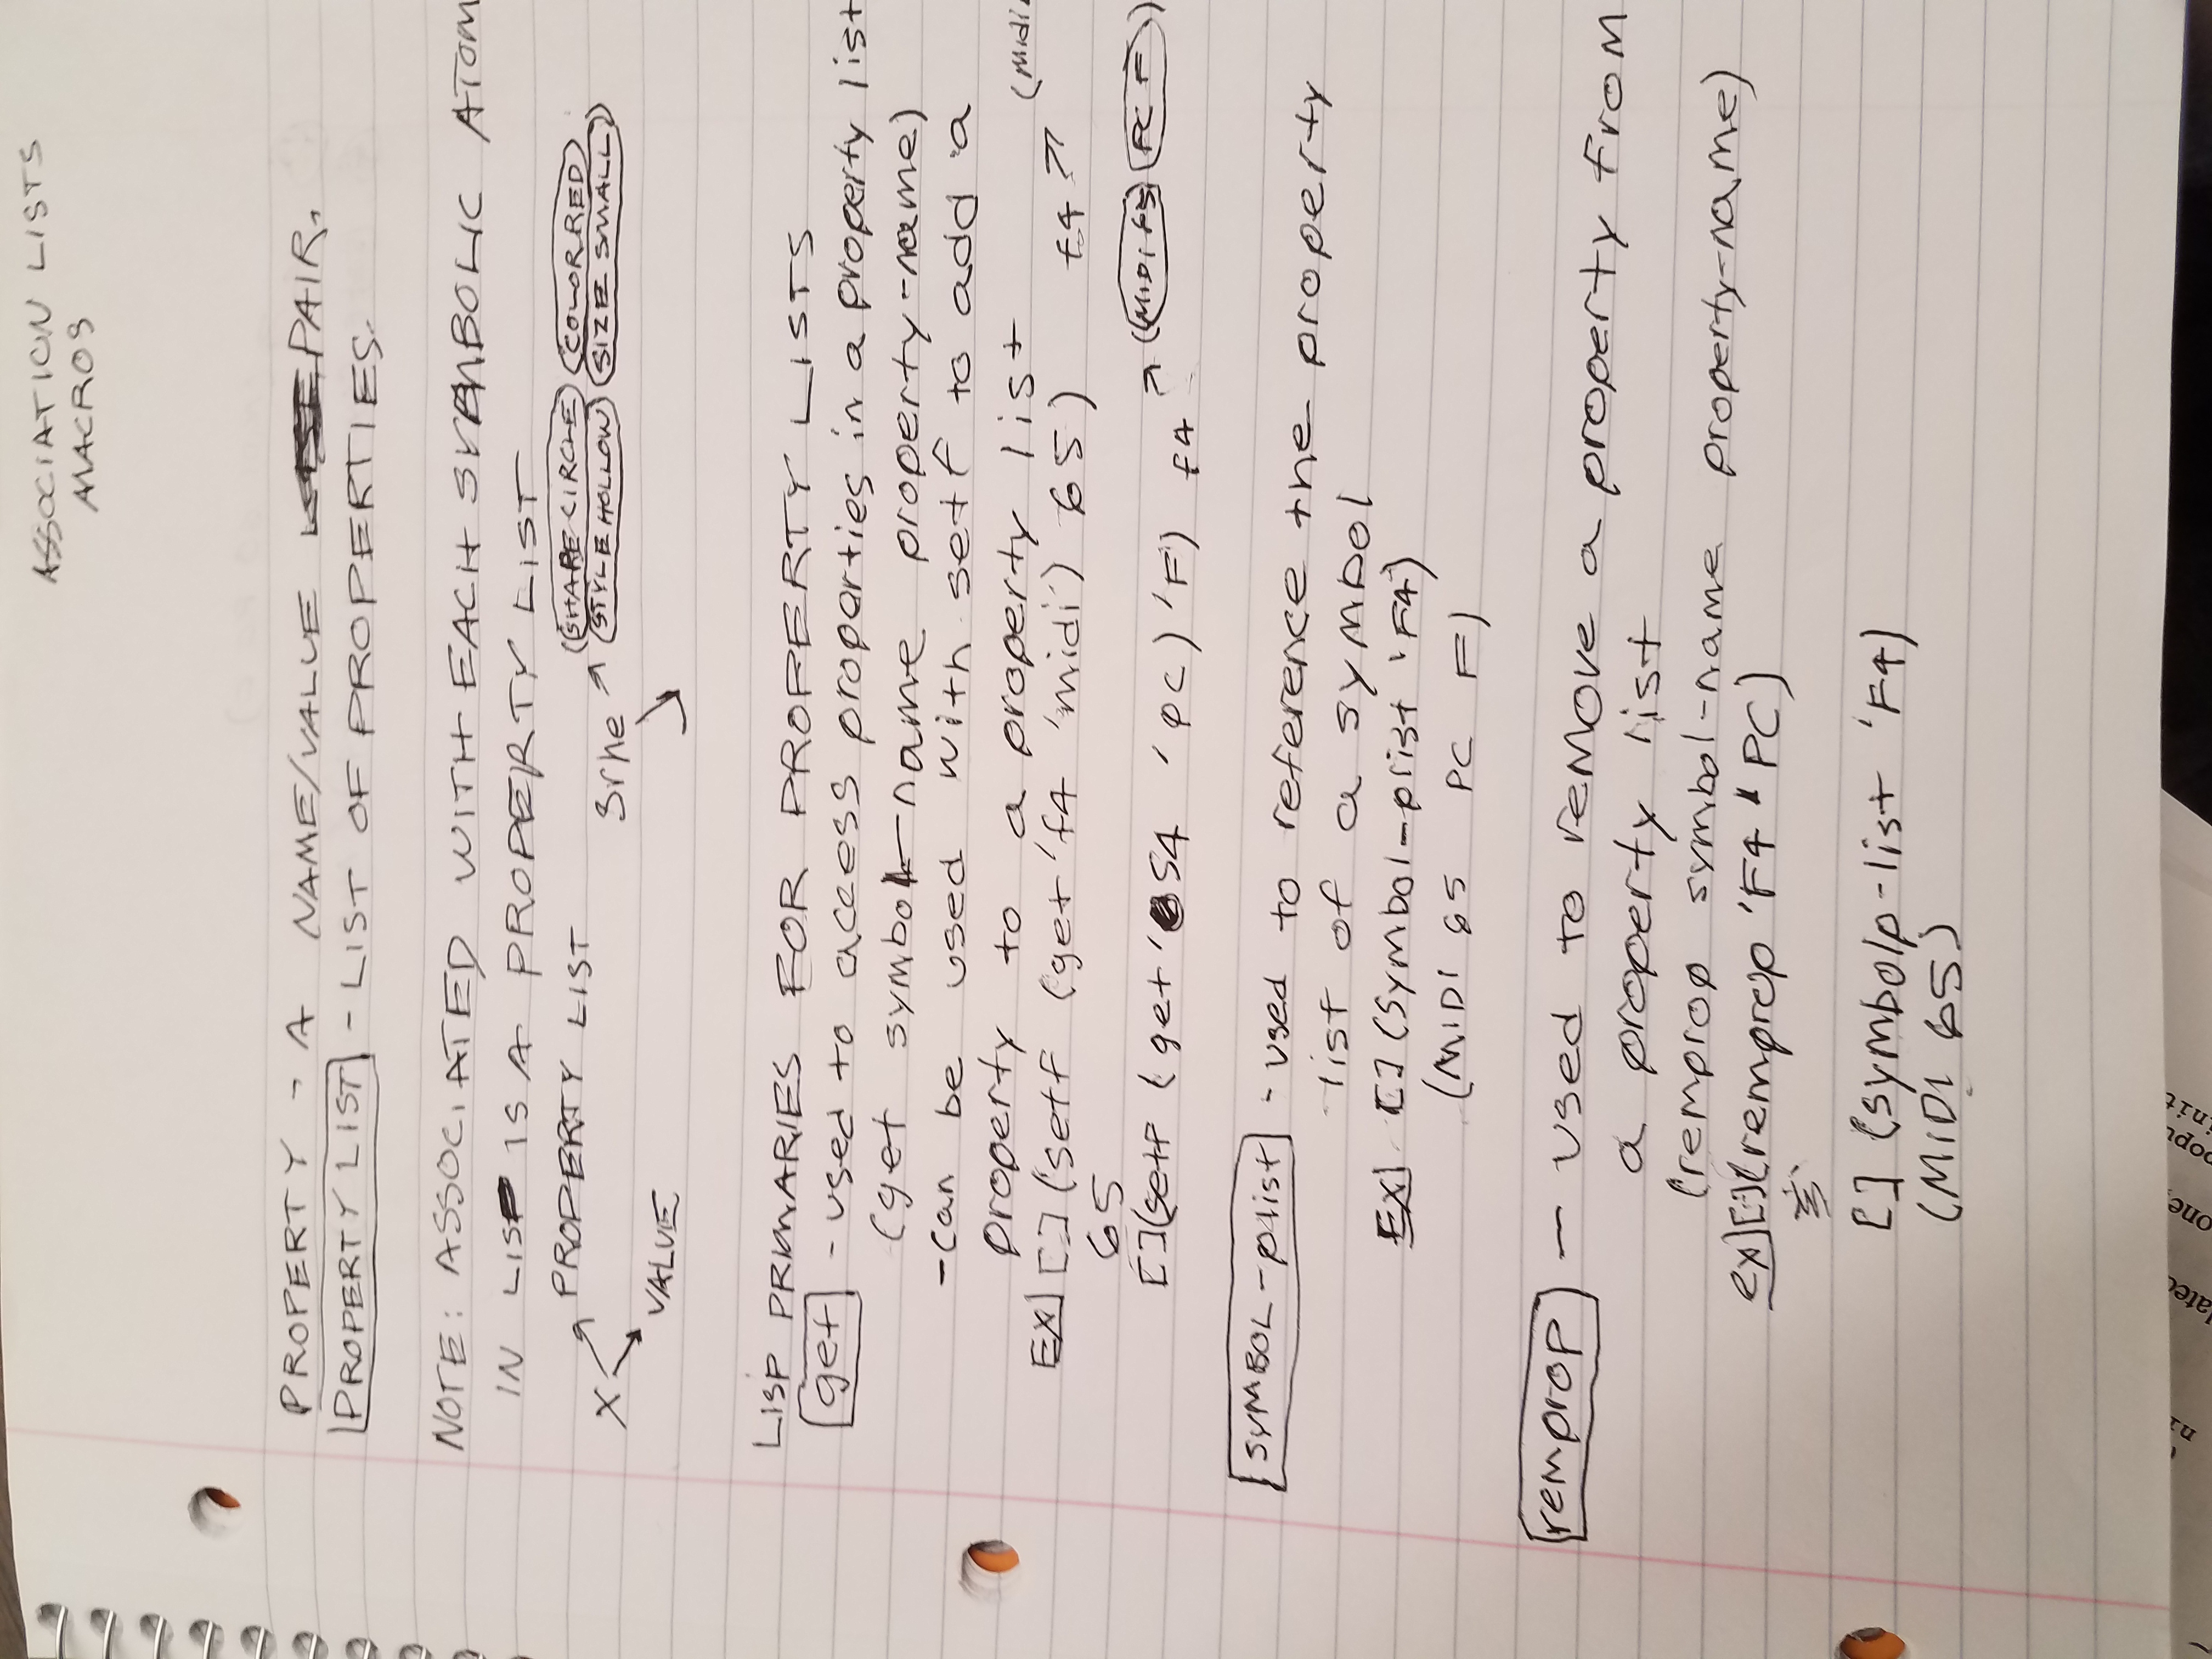 ASSOCIATION LISTS
MACROS
PROPERTY - A NAME/VALUE PAIR.
PROPERTY LIST - LIST OF PROPERTIES.
NOTE: ASSOCIATED WITH EACH SYMBOLIC ATOM
IN LISP IS A PROPERTY LIST
X PROPERTY LIST
VALUE
Srhe (SHAPE CIRCLE COLOR RED
STYLE HOLLOW SIZE SMALL)
LISP PRIMARIES FOR PROPERTY LISTS
get - used to access properties in a property list
(get symbol-name property-name)
-can be used with setf to add a
property to a property list
EX] [](setf (get 'f4 'midi) 65) f4 (midi
65
[](setf (get 'S4 'PC) 'F) f4 ((MIDI 65) (PC F))
SYMBOL-plist - used to reference the property
list of a symbol
EX] [] (Symbol-plist 'F4)
(MIDI 65 PC F)
remprop - used to remove a property from
a property list
(remprop symbol-name property-name)
ex] [](remprop 'F4 ' PC)
[] (symbolp-list 'F4)
(MIDI 65)
nit
lated
one,
popu
init